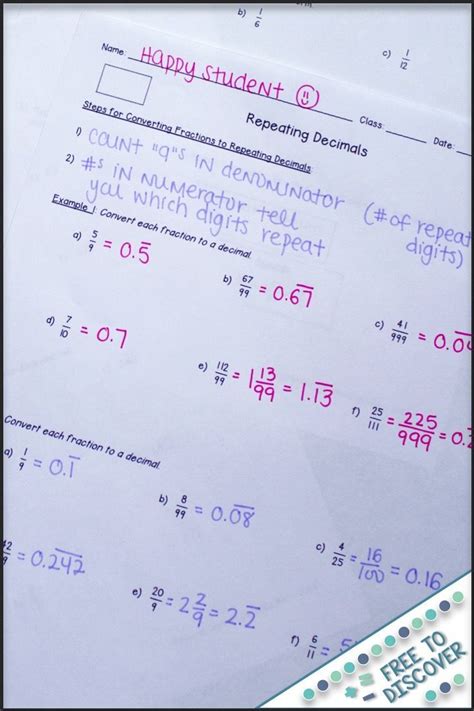 b) 1/6
c) 1/12
Name: Happy Student
Class: Date:
Repeating Decimals
Steps for Converting Fractions to Repeating Decimals:
1) COUNT "9"s IN DENOMINATOR (# OF REPEAT
2) #s IN NUMERATOR tell digits)
you which digits repeat
Example 1: Convert each fraction to a decimal.
a) 5/9 = 0.5̅
b) 67/99 = 0.6̅7̅
c) 41/999 = 0.04
d) 7/10 = 0.7
e) 112/99 = 1 13/99 = 1.1̅3̅
f) 25/111 = 225/999 = 0.2
Convert each fraction to a decimal.
a) 1/9 = 0.1̅
b) 8/99 = 0.0̅8̅
c) 4/25 = 16/100 = 0.16
42 = 0.2̅4̅2̅
e) 20/9 = 2 2/9 = 2.2̅
f) 6/11 = 5
FREE TO
DISCOVER